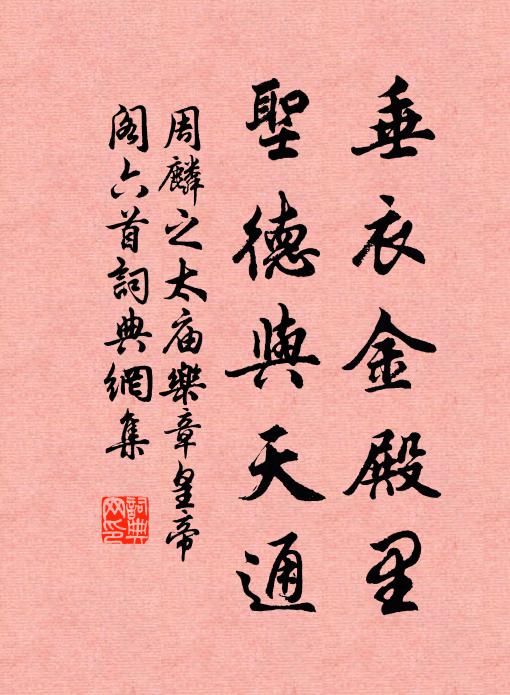 垂衣金殿里
聖德與天通
周麟之太庙樂章皇帝
阁六首詞典網集
詞典网印